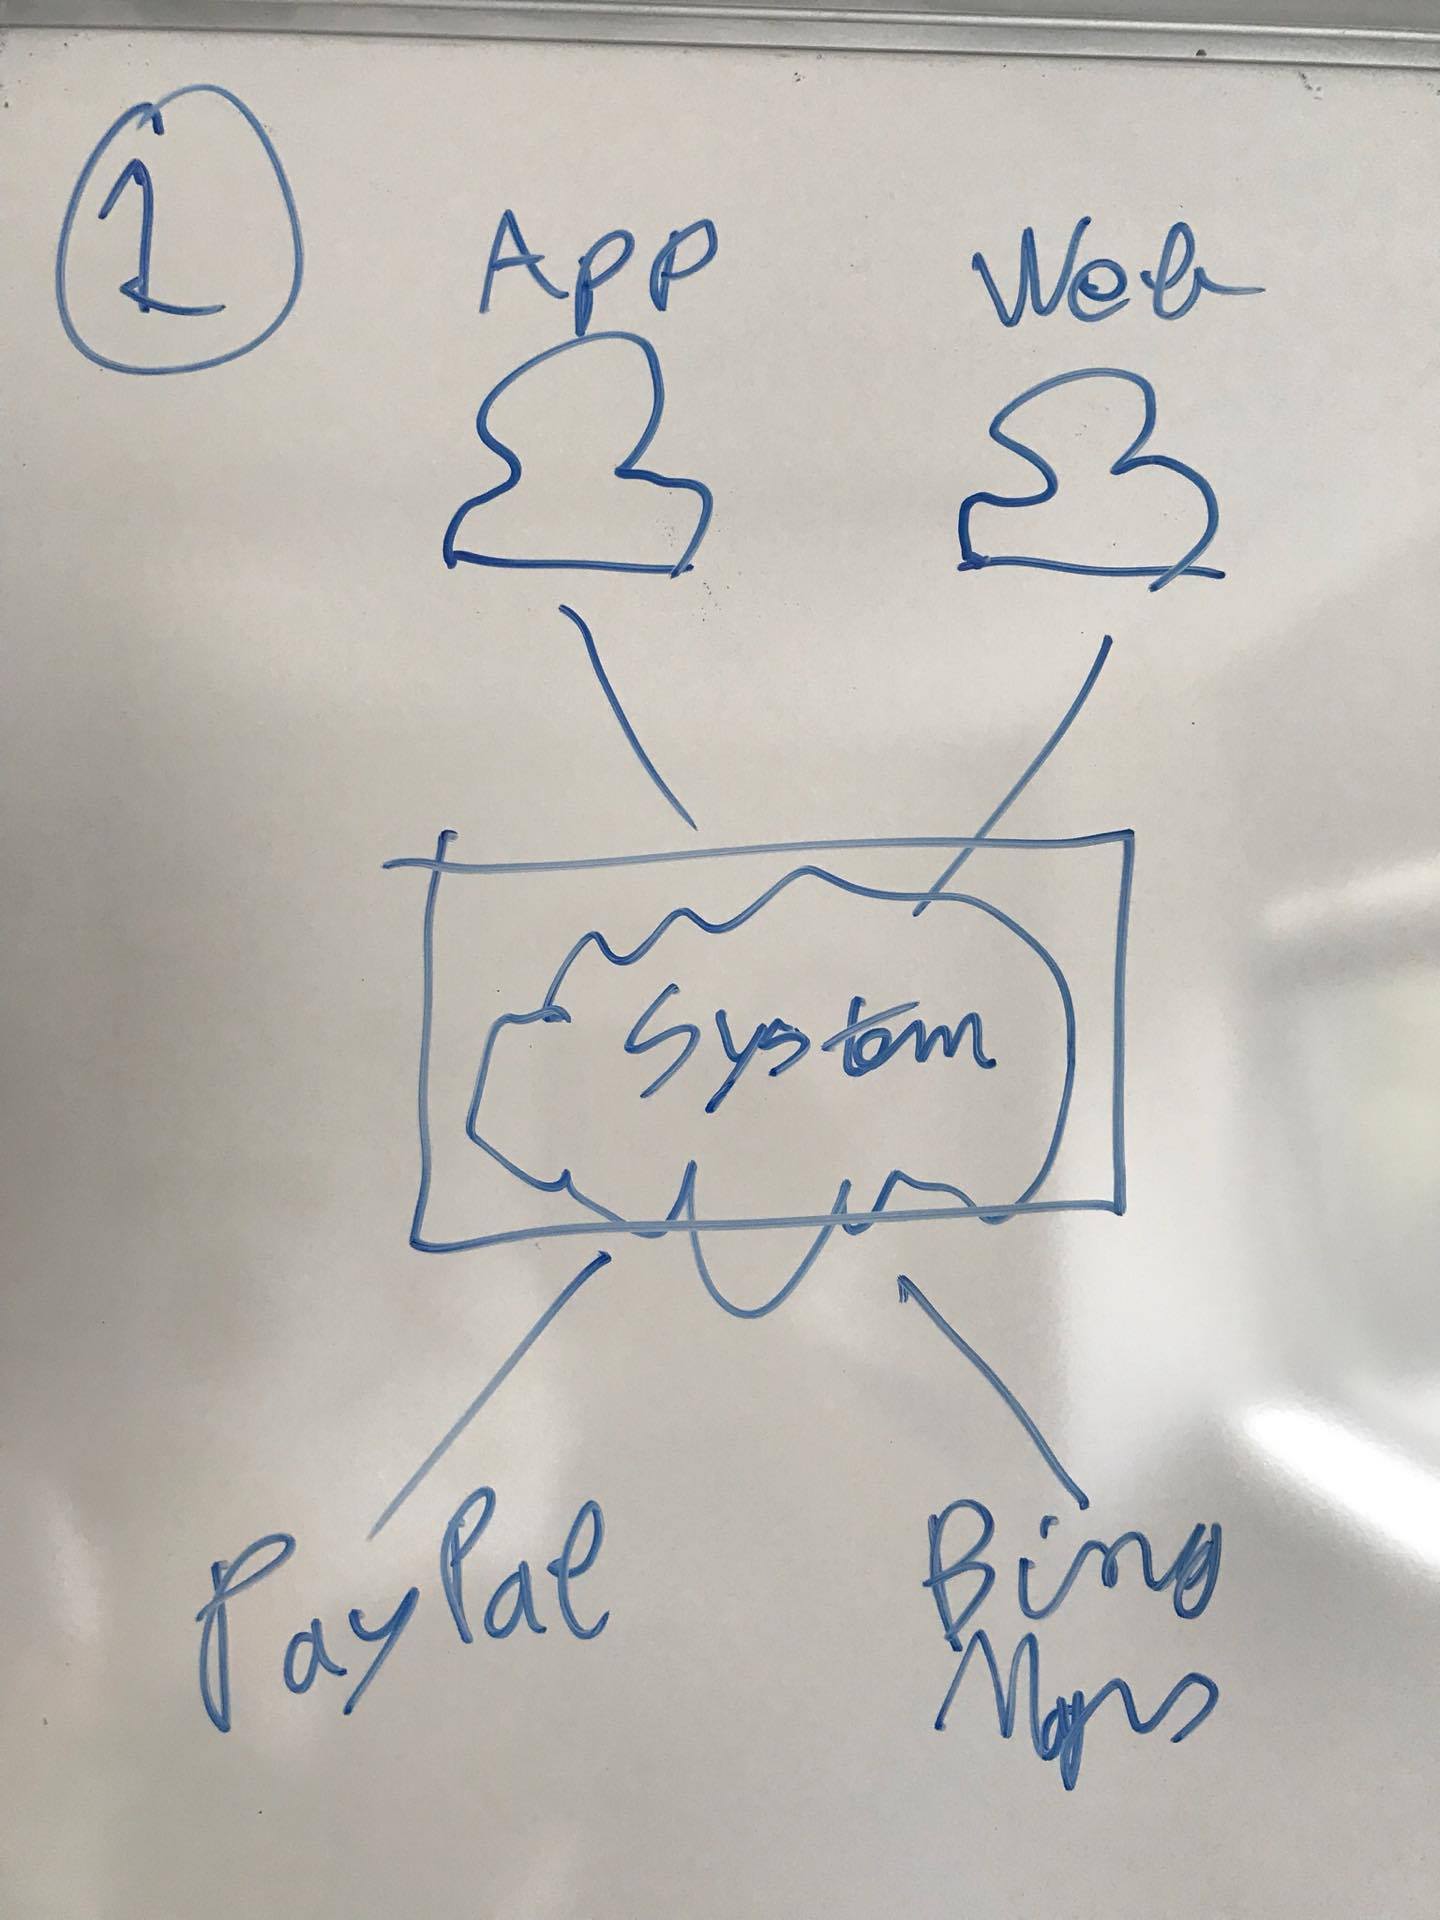 1
App
Web
System
PayPal
Bing
Maps